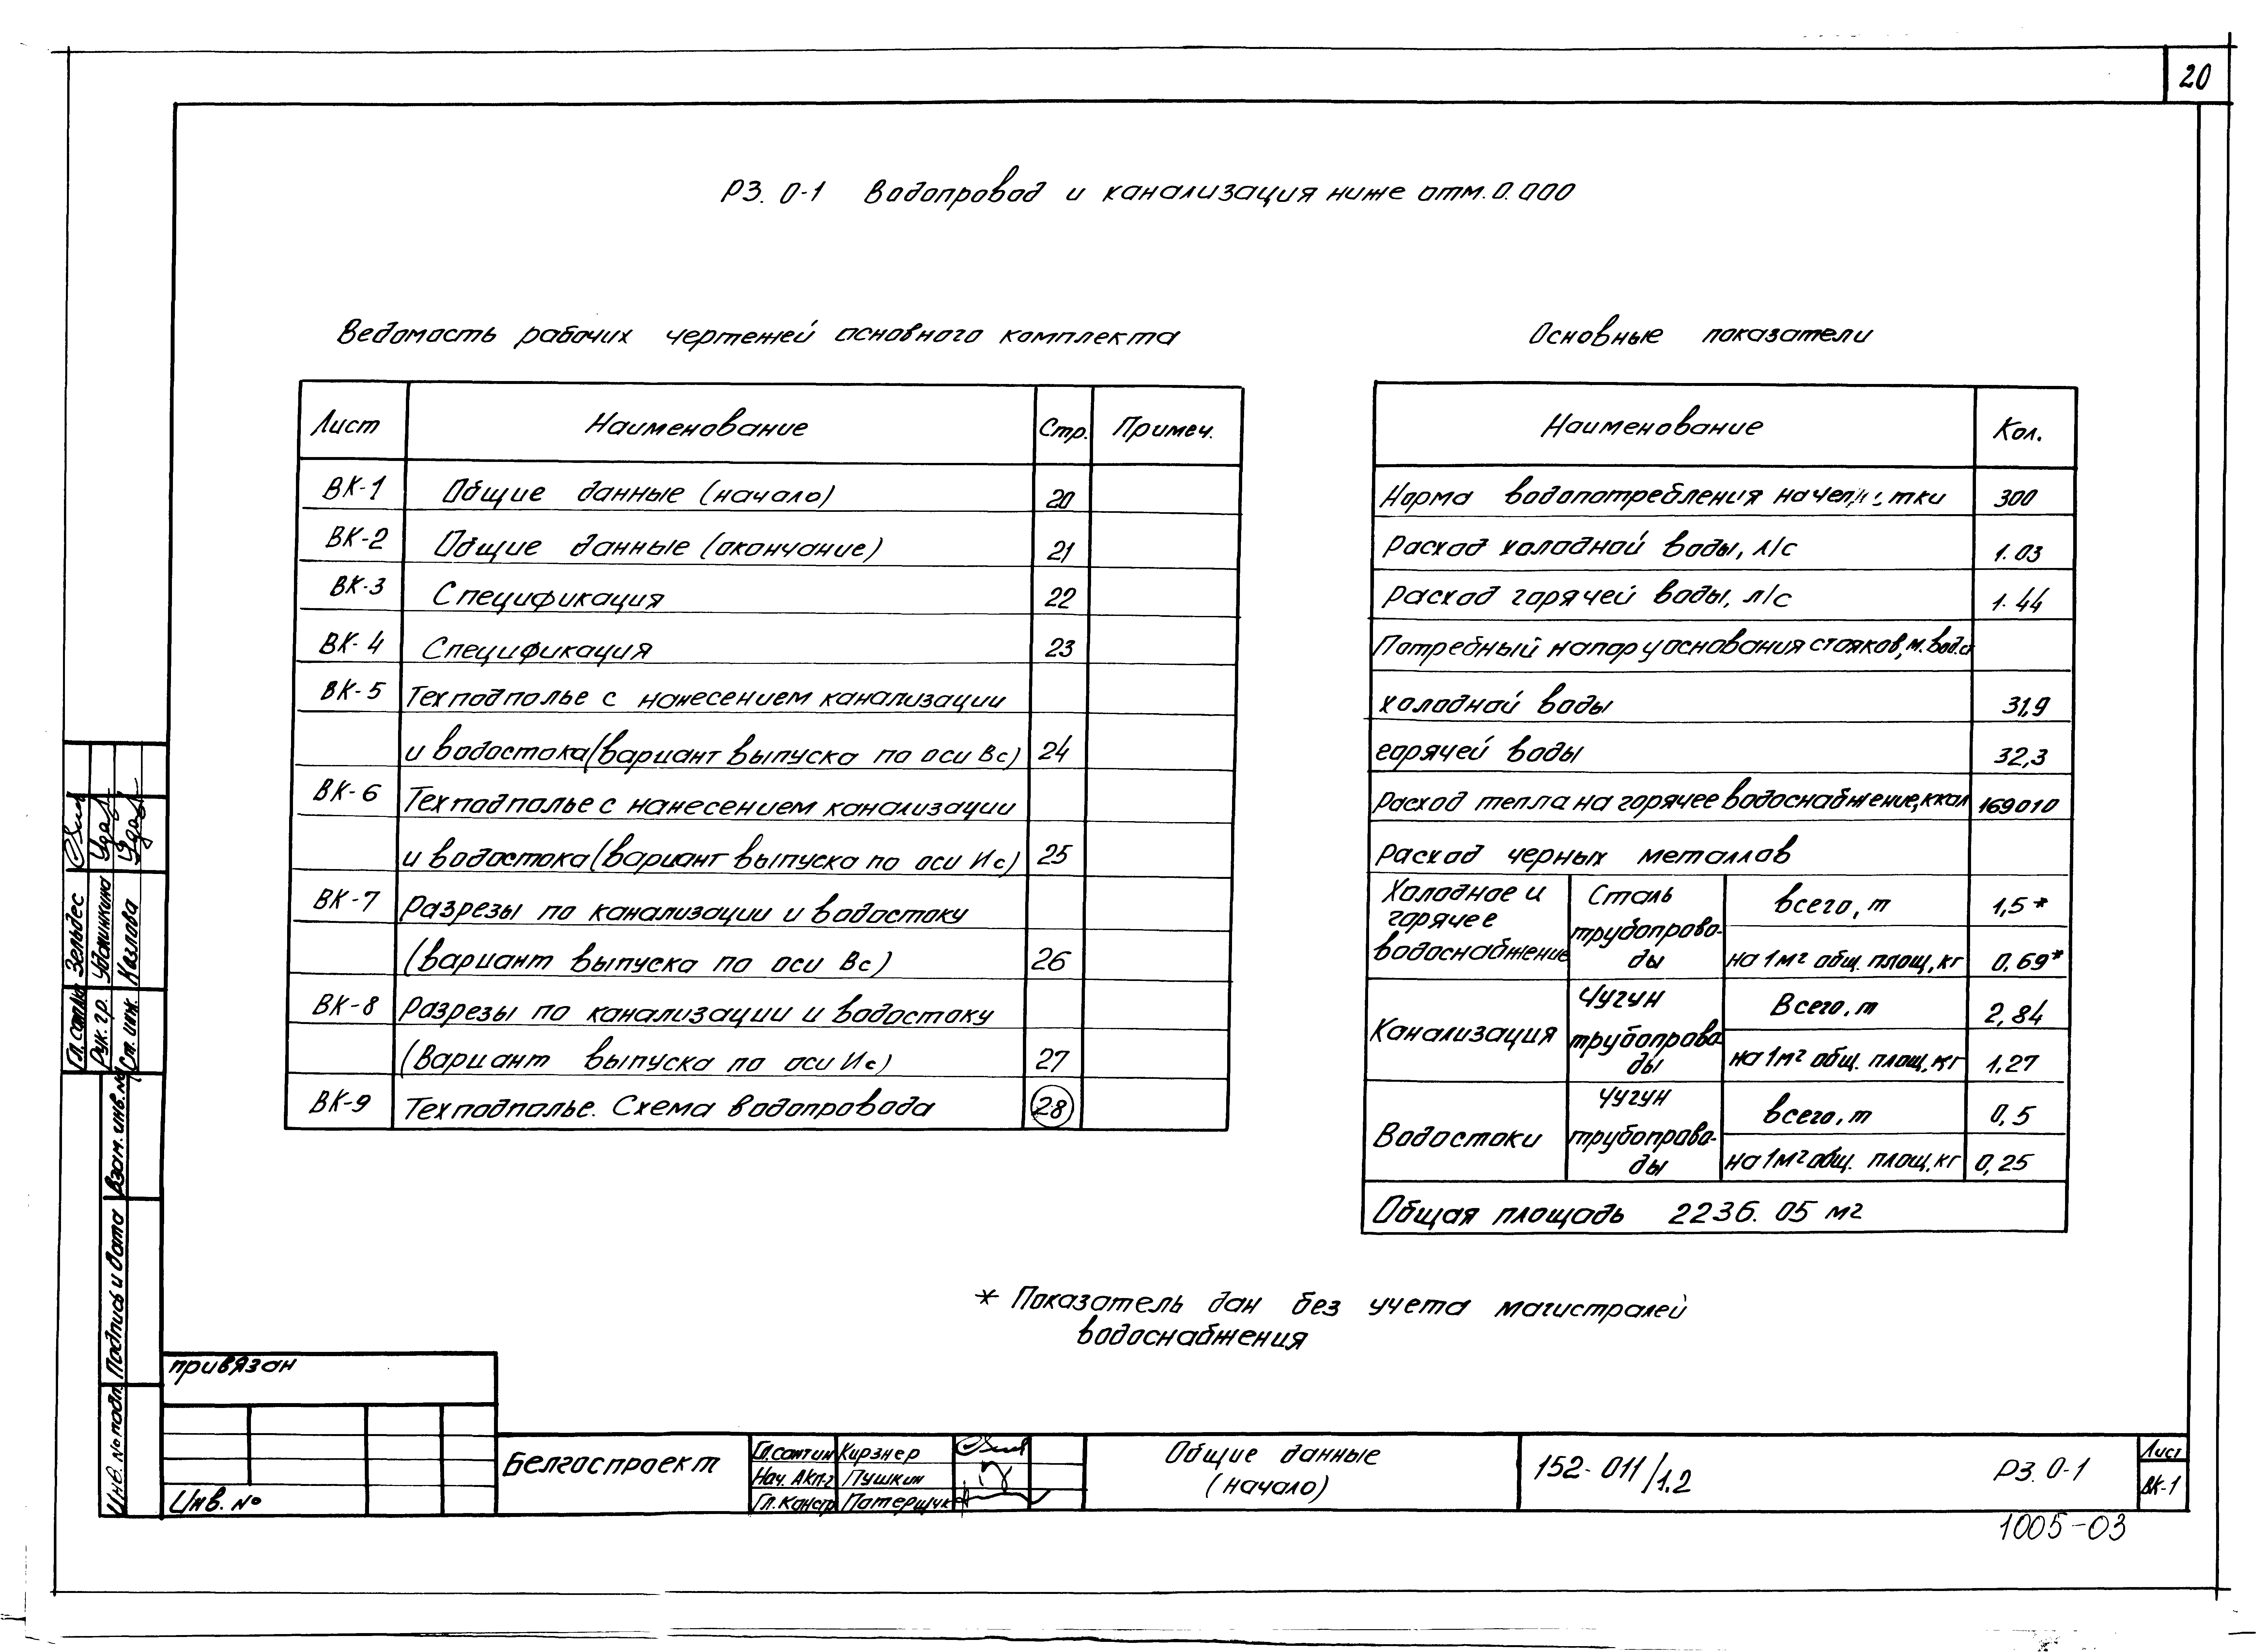 20
РЗ. 0-1 Водопровод и канализация ниже отм. 0.000
Ведомость рабочих чертежей основного комплекта
Лист Наименование Стр. Примеч.
ВК-1 Общие данные (начало) 20
ВК-2 Общие данные (окончание) 21
ВК-3 Спецификация 22
ВК-4 Спецификация 23
ВК-5 Техподполье с нанесением канализации
и водостока (вариант выпуска по оси Вс) 24
ВК-6 Техподполье с нанесением канализации
и водостока (вариант выпуска по оси Ис) 25
ВК-7 Разрезы по канализации и водостоку
(вариант выпуска по оси Вс) 26
ВК-8 Разрезы по канализации и водостоку
(Вариант выпуска по оси Ис) 27
ВК-9 Техподполье. Схема водопровода 28
Основные показатели
Наименование Кол.
Норма водопотребления на 300
Расход холодной воды, л/с 1.03
Расход горячей воды, л/с 1.44
Потребный напор у основания стояков, м.вод.ст
холодной воды 31,9
горячей воды 32,3
Расход тепла на горячее водоснабжение, ккал 169010
Расход черных металлов
Холодное и
горячее
водоснабжение
Сталь
трубопрово-
ды
всего, т 1,5*
на 1м2 общ. площ, кг 0,69*
Канализация
Чугун
трубопрово
ды
Всего, т 2,84
на 1м2 общ. площ, кг 1,27
Водостоки
Чугун
трубопрово-
ды
всего, т 0,5
на 1м2 общ. площ, кг 0,25
Общая площадь 2236.05 м2
* Показатель дан без учета магистралей
водоснабжения
Зельдес
Рук. гр.
Ст. инж. Козлова
Взам. инв. №
Подпись и дата
Инв. № подл.
привязан
Инв. №
Белгоспроект
Гл.сантин Кирзнер
Нач. АКП-2 Пушкин
Гл. констр. Патерщук
Общие данные
(начало)
152-011/1.2
РЗ. 0-1
Лист
ВК-1
1005-03